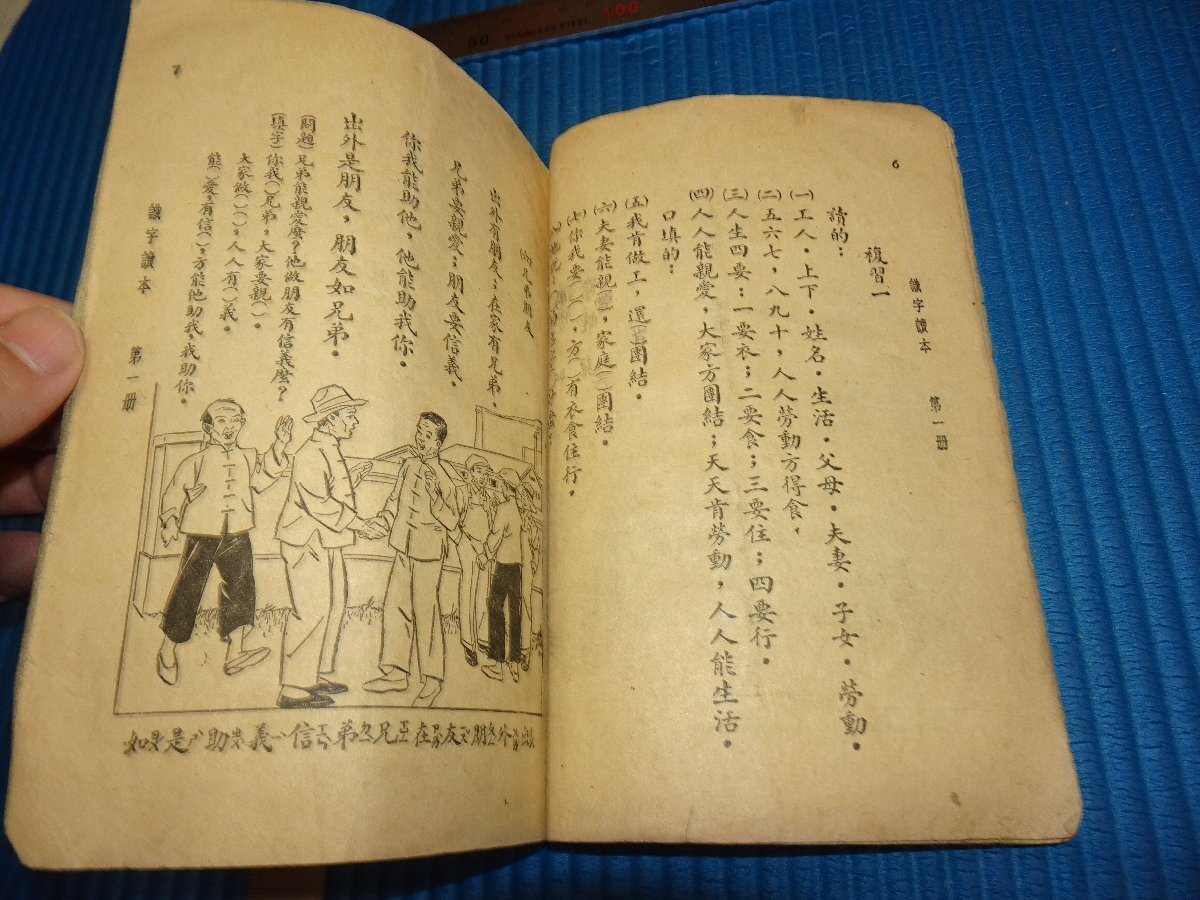 50 STAINLESS STEEL 100
6
識字讀本 第一册
複習一
讀的：
(一)工人．上下．姓名．生活．父母．夫妻．子女．勞動．
(二)五六七，八九十，人人勞動方得食，
(三)人生四要：一要衣；二要食；三要住；四要行．
(四)人人能親愛，大家方團結；天天肯勞動，人人能生活．
口填的：
(五)我肯做工，還( )團結．
(六)夫妻能親( )，家庭( )團結．
(七)你我要( )，方( )有衣食住行．
7
兄弟朋友
出外有朋友；在家有兄弟．
兄弟要親愛；朋友要信義．
你我能助他，他能助我你．
出外是朋友，朋友如兄弟．
(問題)兄弟能親愛麽？他做朋友有信義麽？
(填字)你我( )兄弟，大家要親( )．
大家做( )( )，人人有( )義．
能( )愛，有信( )，方能他助我，我助你．
識字讀本 第一册
如是助義信弟兄在友朋外出